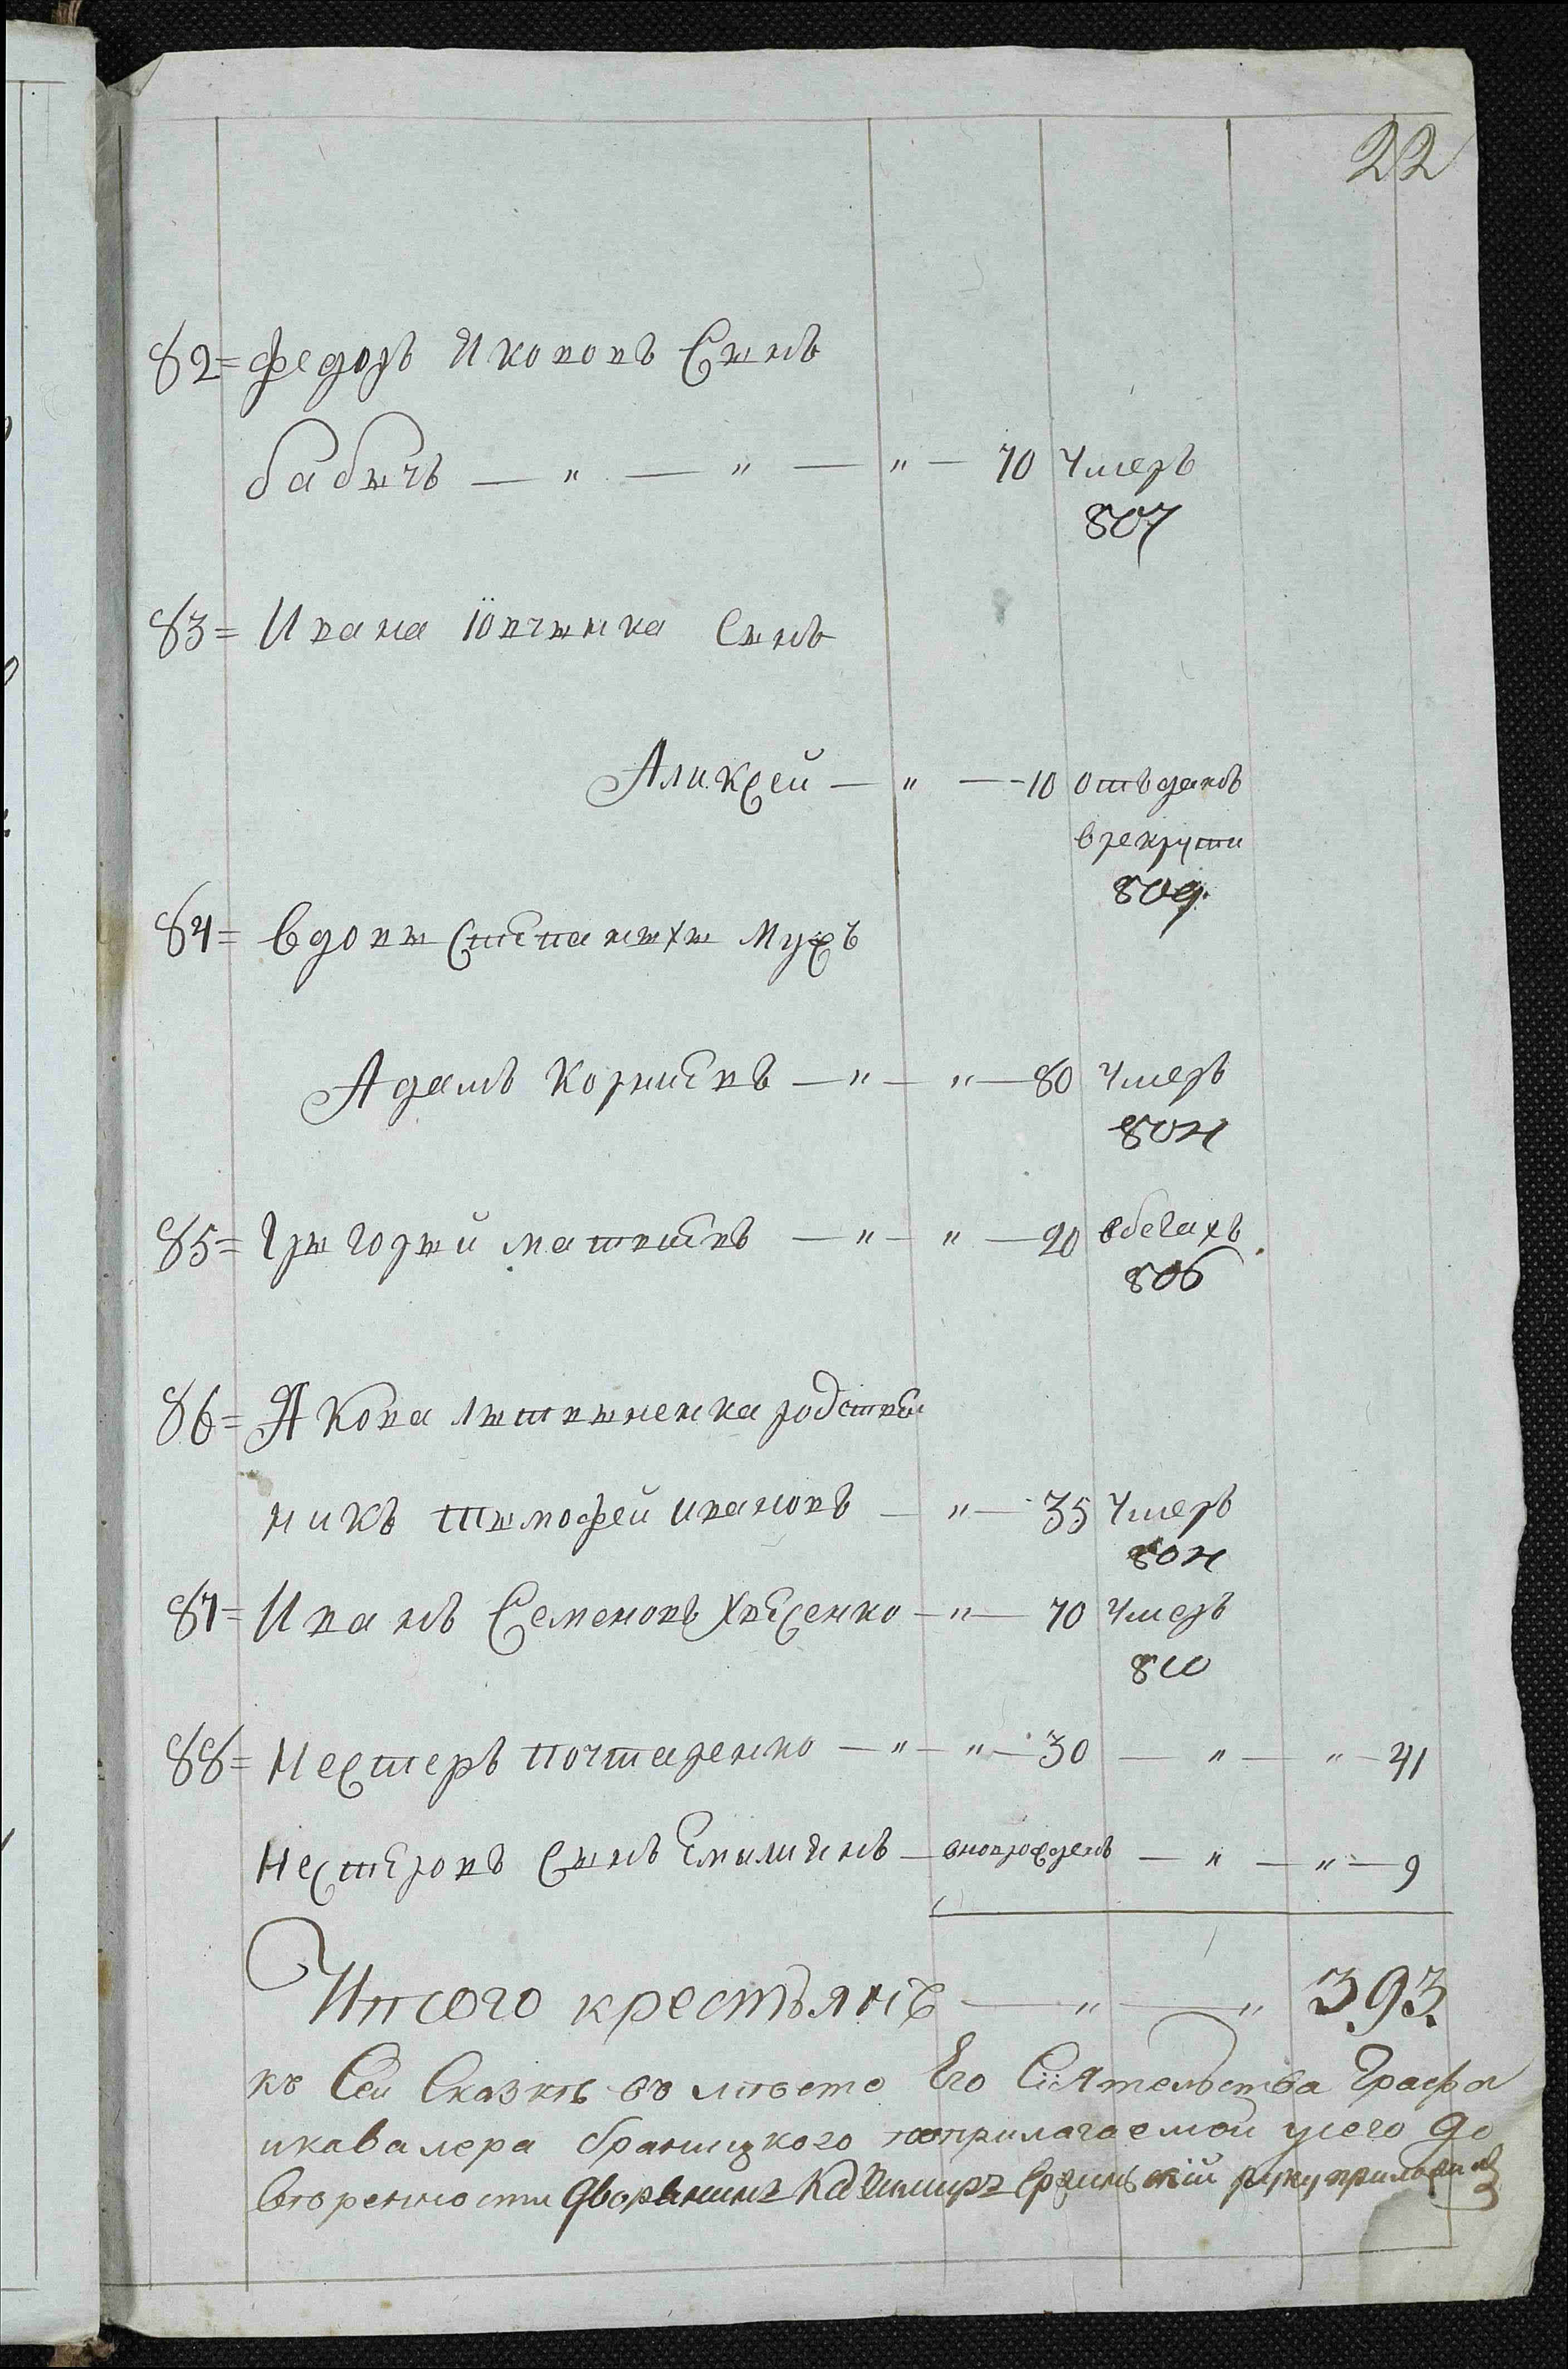 22
82= федоръ Яковов Сынъ
бабычъ — " — " — " — 70 Умеръ
807
83= Ивана Ювчынка Сынъ
Аликсей — " — 10 отъданъ
в рекруты
809
84= вдовы Степаныхы Мужъ
Адамъ Корниевъ — " — " — 80 Умеръ
804
85= Грыгорый матвиевъ — " — " — 20 в бегахъ
806
86= Якова Лытвыненка родствен
никъ Тымофей ивановъ — " — 35 Умеръ
804
87= Иванъ Семеновъ — " — 70 Умеръ
810
88= Нестеръ почтаренко — " — " — 30 — " — " — 41
Нестеровъ Сынъ Емилиянъ — вновророжденъ — " — " — 9
Итого крестьянъ — " — " 393.
къ Сей Сказкѣ въ мѣсто Его Сіятельства Графа
и кавалера браницкого по прилагаемой у сего до
вѣренности дворянинъ Казимиръ руку приложилъ